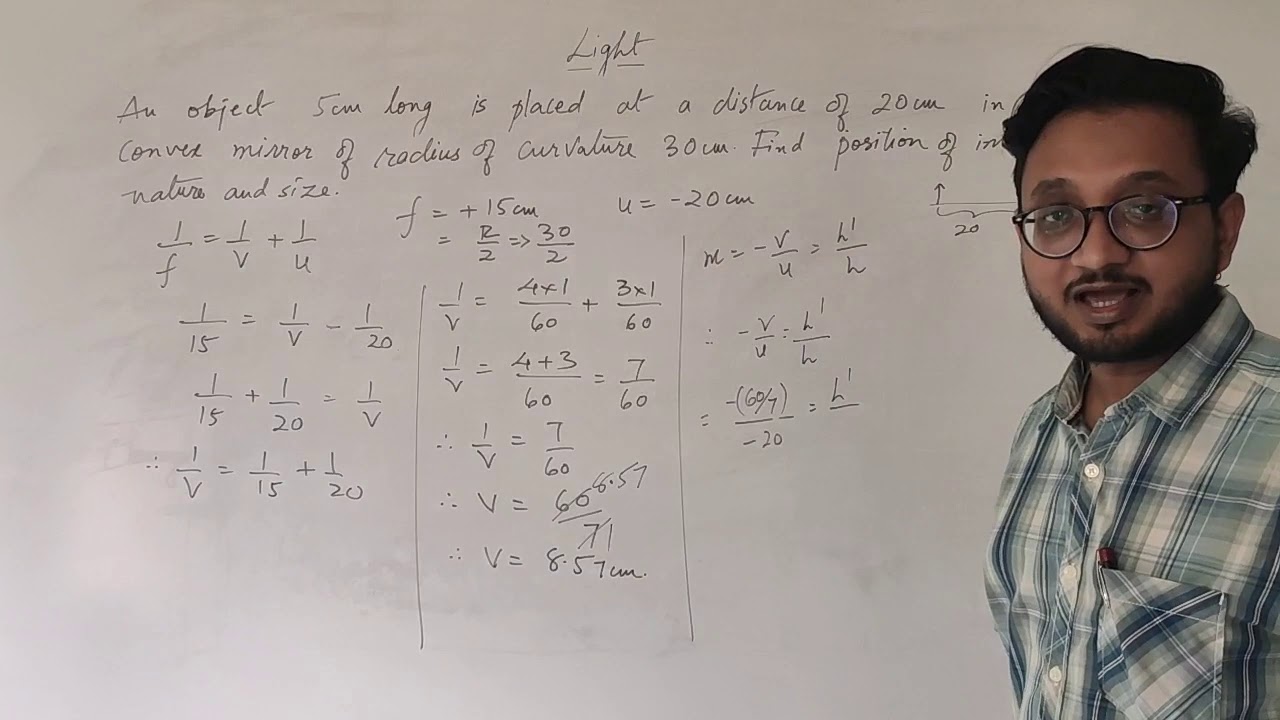 Light
An object 5cm long is placed at a distance of 20cm in
Convex mirror of radius of curvature 30cm. Find position of
nature and size.
f = +15cm u = -20cm
= R/2 => 30/2
20
1/f = 1/v + 1/u
1/15 = 1/v - 1/20
1/15 + 1/20 = 1/v
∴ 1/v = 1/15 + 1/20
1/v = 4×1/60 + 3×1/60
1/v = 4+3/60 = 7/60
∴ 1/v = 7/60
∴ V = 60/7 8.57 1
∴ V = 8.57cm.
m = -v/u = h'/h
∴ -v/u = h'/h
= -(60/7)/-20 = h'/